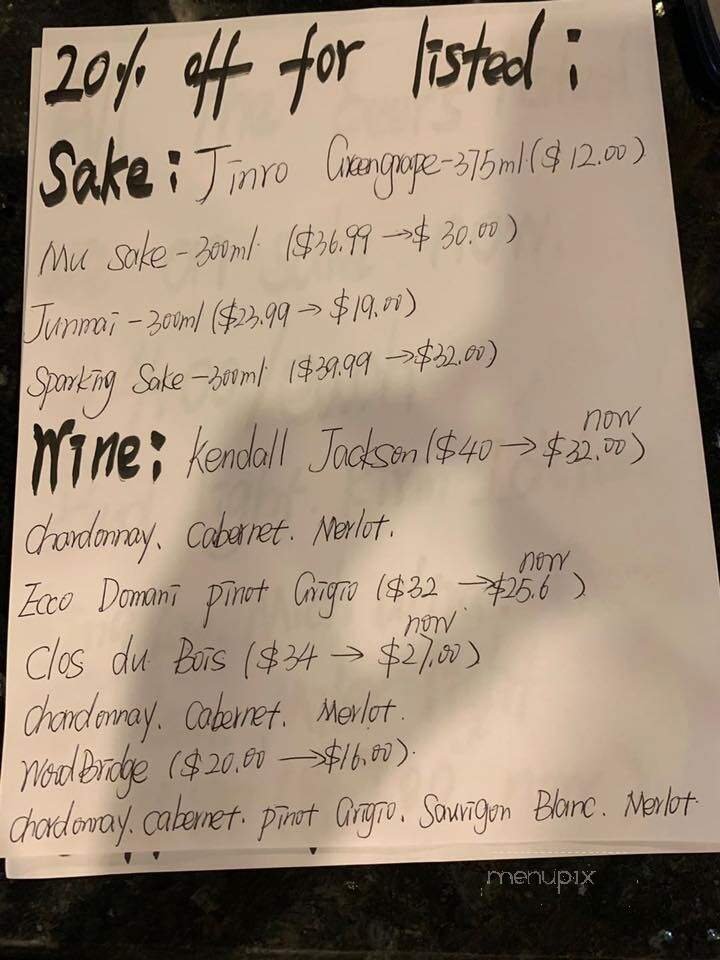 20% off for listed:
Sake: Jinro Greengrape-375ml ($12.00)
Mu sake-300ml. ($36.99→$30.00)
Junmai-300ml ($23.99→$19.00)
Sparking Sake-300ml. ($39.99→$32.00)
now
Wine: Kendall Jackson ($40→$32.00)
Chardonnay. Cabernet. Merlot.
now
Ecco Domani pinot Grigio ($32→$25.6)
now
Clos du Bois ($34→$27.00)
Chardonnay. Cabernet. Merlot.
WoodBridge ($20.00→$16.00)
Chardonnay. cabernet. pinot Grigio. Sauvigon Blanc. Merlot.
menupix